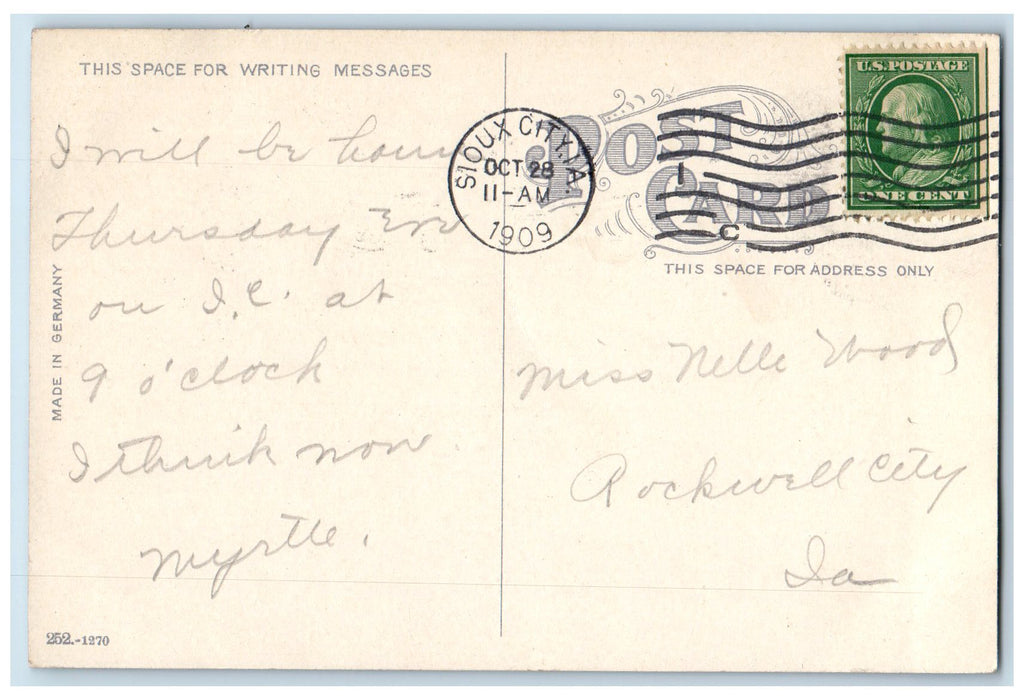 THIS SPACE FOR WRITING MESSAGES
I will be home
Thursday Eve
on I.C. at
9 o'clock
I think now
Myrtle.
MADE IN GERMANY
252.-1270
POST CARD
SIOUX CITY, IA.
OCT 28
11-AM
1909
1
C
U.S. POSTAGE
ONE CENT
THIS SPACE FOR ADDRESS ONLY
Miss Nelle Wood
Rockwell City
Ia